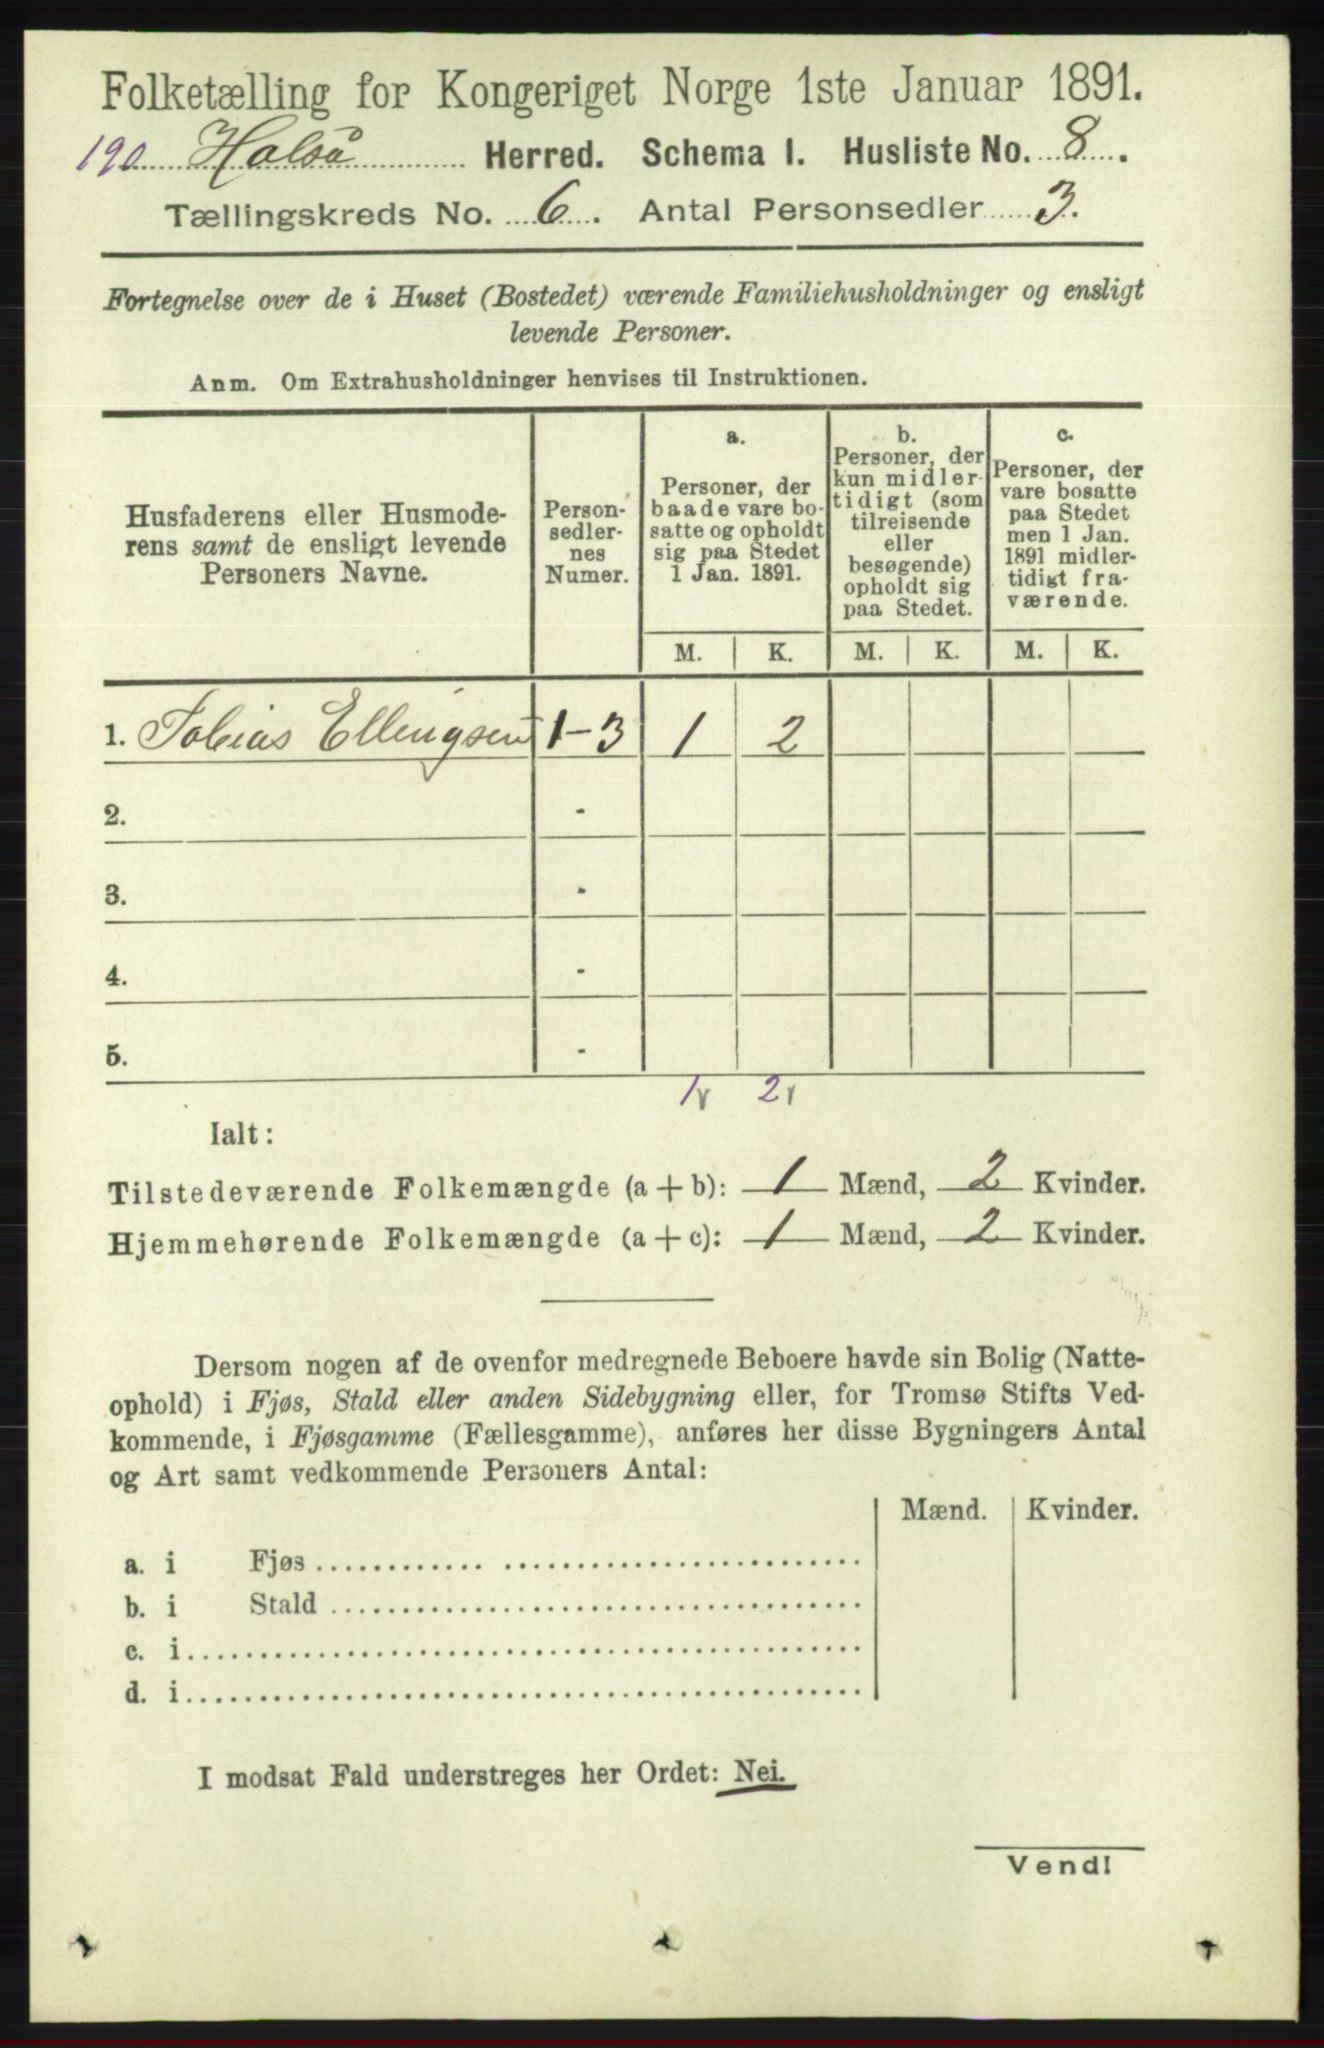 Folketælling for Kongeriget Norge 1ste Januar 1891.
190 Halså Herred. Schema I. Husliste No. 8.
Tællingskreds No. 6. Antal Personsedler 3.
Fortegnelse over de i Huset (Bostedet) værende Familiehusholdninger og ensligt
levende Personer.
Anm. Om Extrahusholdninger henvises til Instruktionen.
Husfaderens eller Husmode-
rens samt de ensligt levende
Personers Navne.
Person-
sedler-
nes
Numer.
a.
Personer, der
baade vare bo-
satte og opholdt
sig paa Stedet
1 Jan. 1891.
b.
Personer, der
kun midler-
tidigt (som
tilreisende
eller
besøgende)
opholdt sig
paa Stedet.
c.
Personer, der
vare bosatte
paa Stedet
men 1 Jan.
1891 midler-
tidigt fra-
værende.
M. K. M. K. M. K.
1. Tobias Ellingsen 1-3 1 2
2. -
3. -
4. -
5. -
1 2
Ialt:
Tilstedeværende Folkemængde (a + b): 1 Mænd, 2 Kvinder.
Hjemmehørende Folkemængde (a + c): 1 Mænd, 2 Kvinder.
Dersom nogen af de ovenfor medregnede Beboere havde sin Bolig (Natte-
ophold) i Fjøs, Stald eller anden Sidebygning eller, for Tromsø Stifts Ved-
kommende, i Fjøsgamme (Fællesgamme), anføres her disse Bygningers Antal
og Art samt vedkommende Personers Antal:
Mænd. Kvinder.
a. i Fjøs
b. i Stald
c. i
d. i
I modsat Fald understreges her Ordet: Nei.
Vend!